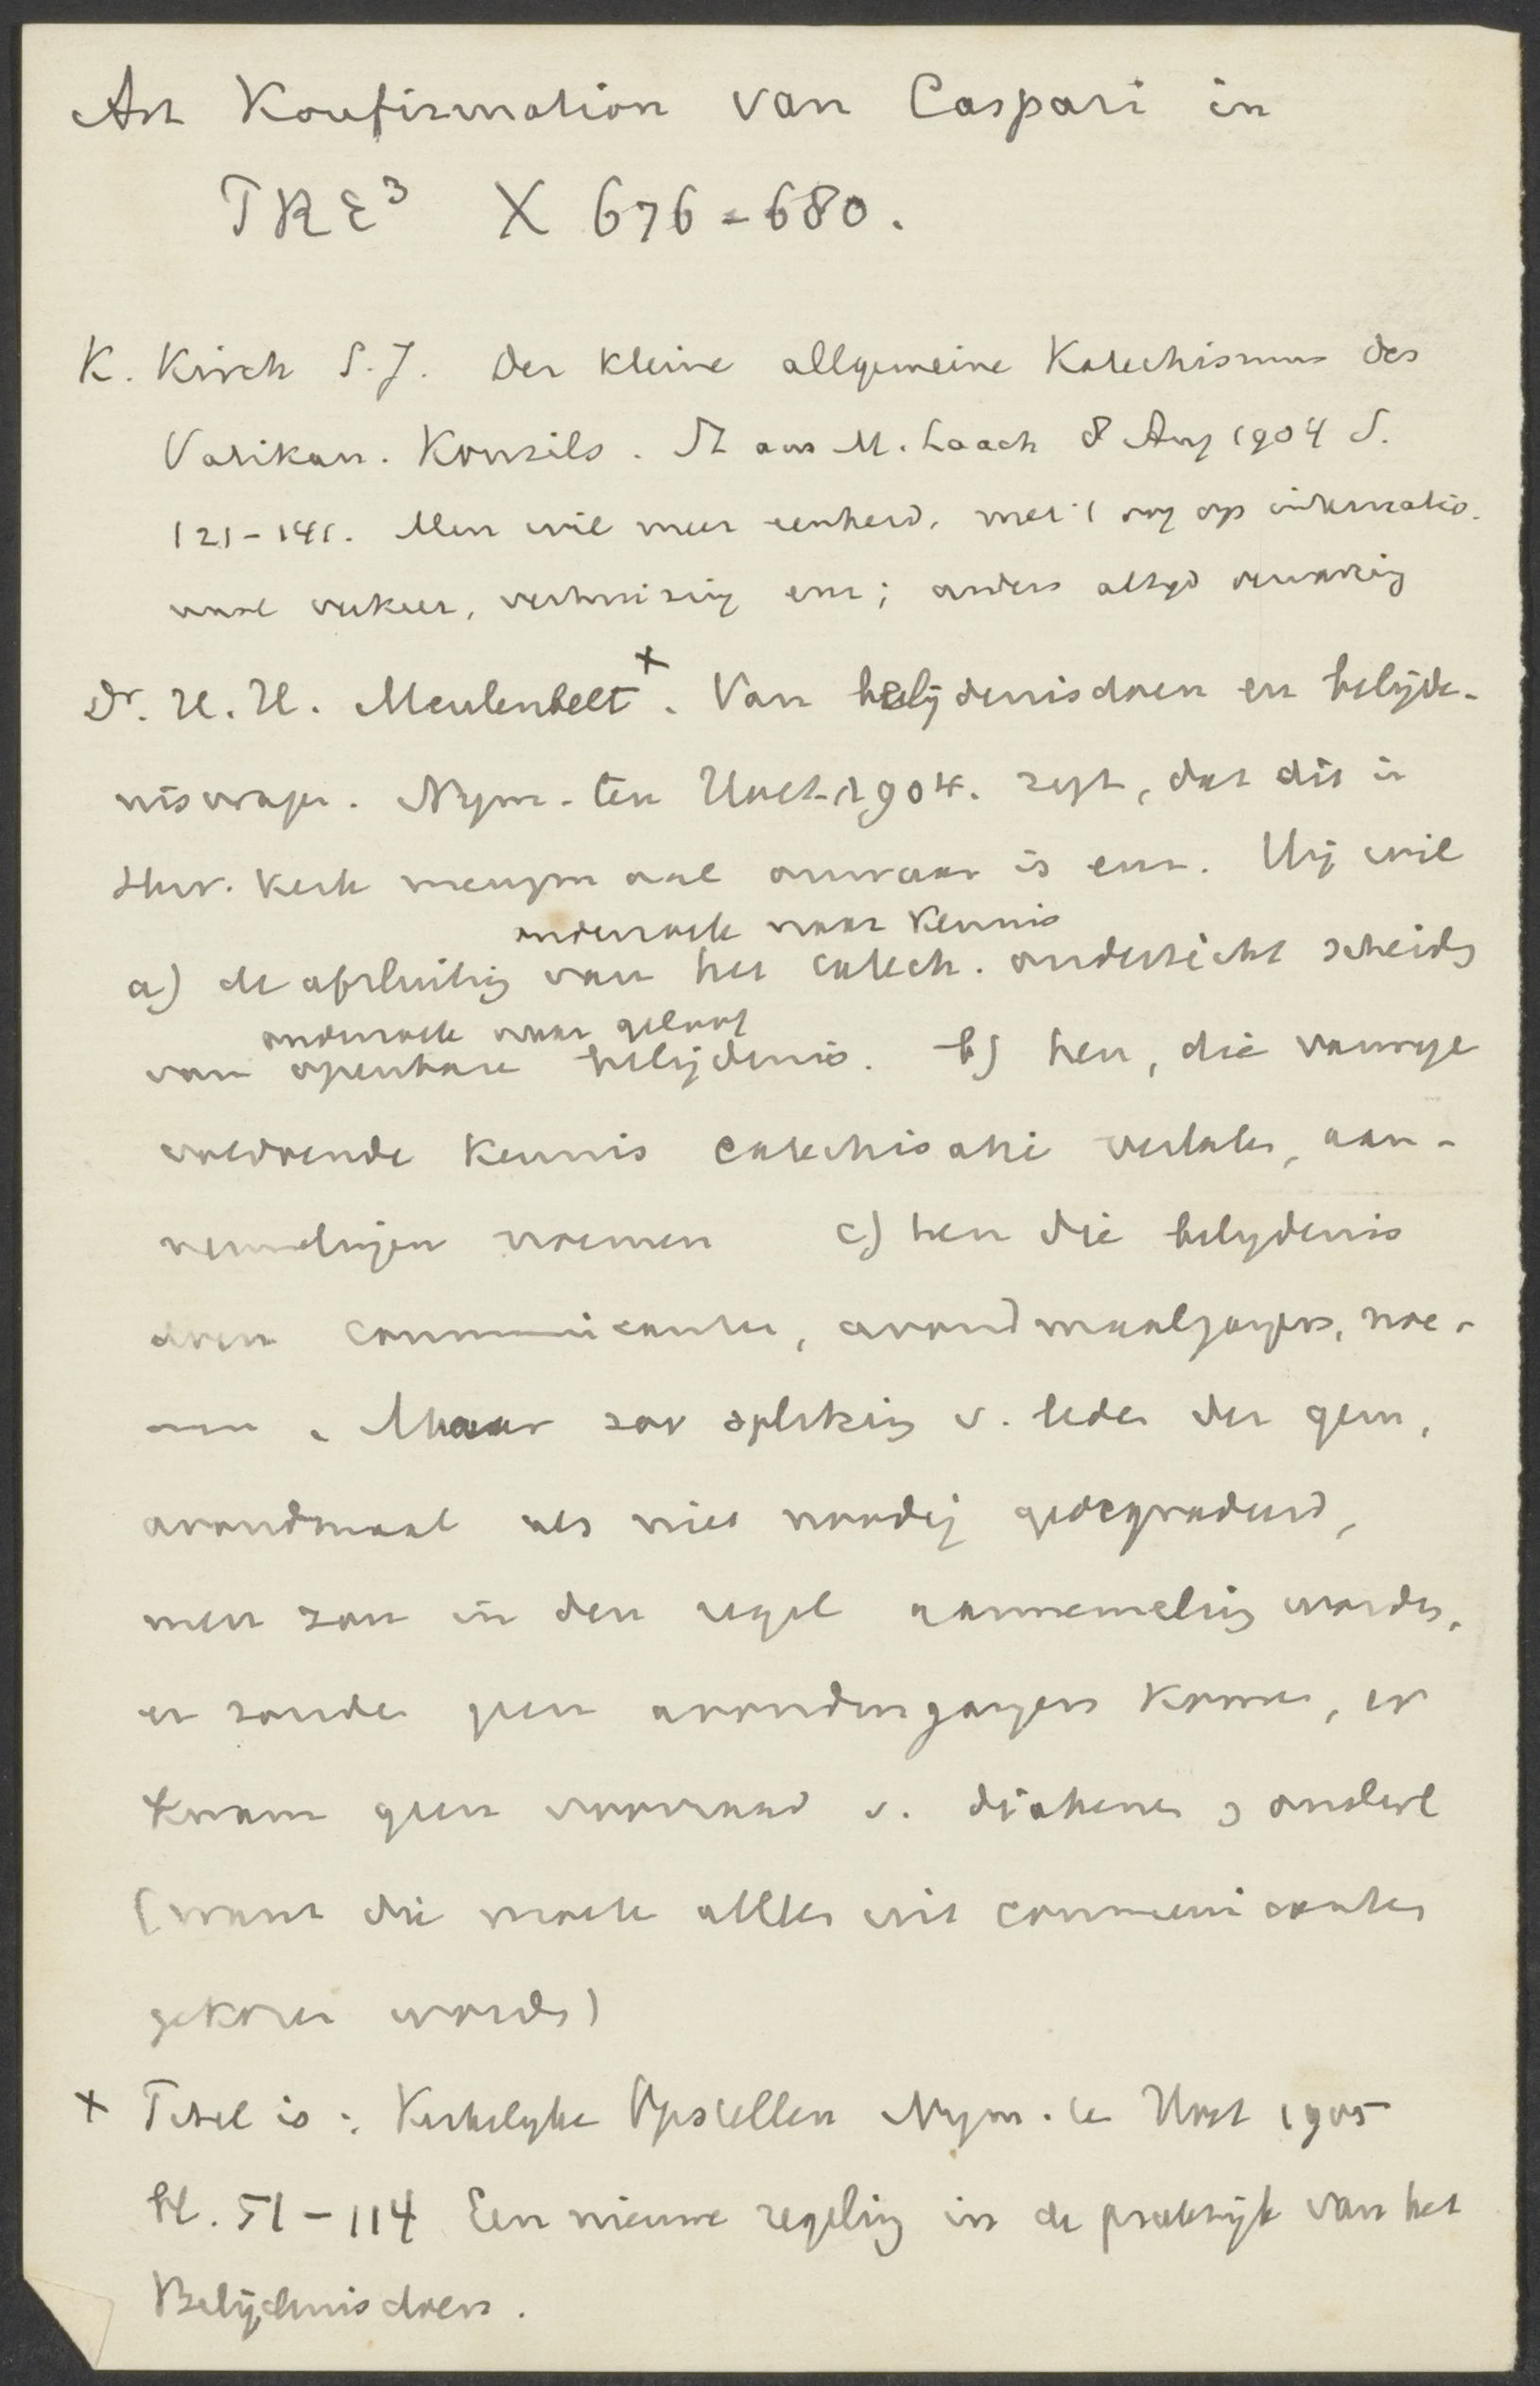 Art Konfirmation van Caspari in
PRE³ X 676-680.
K. Kirch S.J. Der kleine allgemeine Katechismus des
Vatikan. Konzils. St aus M. Laach 8 Aug 1904 S.
121-141. Men wil meer eenheid, met 't oog op internatio-
naal verkeer, verhuizing enz; anders altijd verwarring
Dr. H. H. Meulenbelt x. Van belijdenisdoen en belijde-
nisvragen. Nijm. ten Hoet 1904. zegt, dat dit in
Herv. Kerk menigmaal onwaar is enz. Hij wil
onderzoek naar kennis
a) de afsluiting van het catech. onderricht scheiden
onderzoek naar geloof
van openbare belijdenis. b) hen, die vanwege
voldoende kennis catechisatie verlaten, aan-
nemelingen noemen c) hen die belijdenis
doen communicanten, avondmaalgangers, noe-
men. Maar zoo splitsing v. leden der gem,
avondmaal als niet noodig gedegradeerd,
men zou in den regel aannemeling worden,
er zouden geen avondmgangers komen, er
kwam geen voorraad v. diakenen, ouderl
(want die moeten allen uit communicanten
gekozen worden)
x Titel is: Kerkelijke Opstellen Nijm. ten Hoet 1905
bl. 51-114 Een nieuwe regeling in de praktijk van het
Belijdenisdoen.